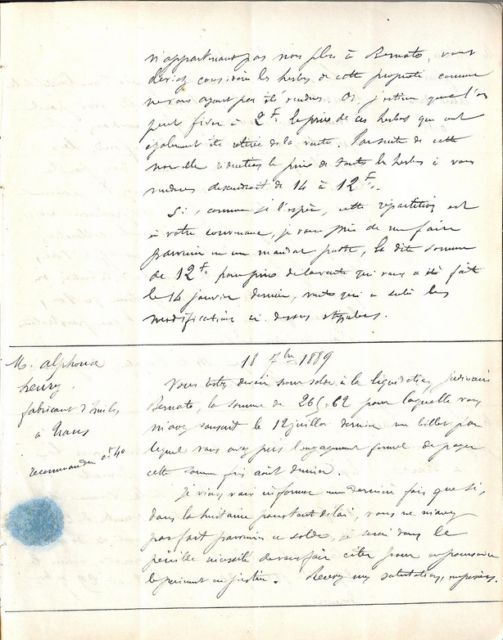 n'appartenant pas non plus à Bernato, vous
devez considérer les herbes de cette propriété comme
ne vous ayant pas été vendues. Or, j'estime que l'on
peut fixer à 2f. le prix de ces herbes qui ont
également été retirées de la vente. Par suite de cette
nouvelle réduction le prix de toutes les herbes à vous
vendues descendrait de 14 à 12f.
Si, comme je l'espère, cette répartition est
à votre convenance, je vous prie de me faire
parvenir en un mandat poste, la dite somme
de 12f. pour prix de la vente qui vous a été faite
le 14 janvier dernier, vente qui a subi les
modifications ci dessus
18 7bre 1889
M. Alphonse
Henry
fabricant d'huiles
à Trans
recommandée
Vous restez devoir pour solde à la liquidation judiciaire
Bernato, la somme de 26f,62 pour laquelle vous
m'avez souscrit le 12 juillet dernier un billet par
lequel vous avez pris l'engagement formel de payer
cette somme fin août dernier.
Je viens vous informer une dernière fois que si,
dans la huitaine pour tout délai, vous ne m'avez
pas fait parvenir ce solde, je serai dans la
pénible nécessité de vous faire citer pour en poursuivre
le paiement en justice. Recevez mes salutations